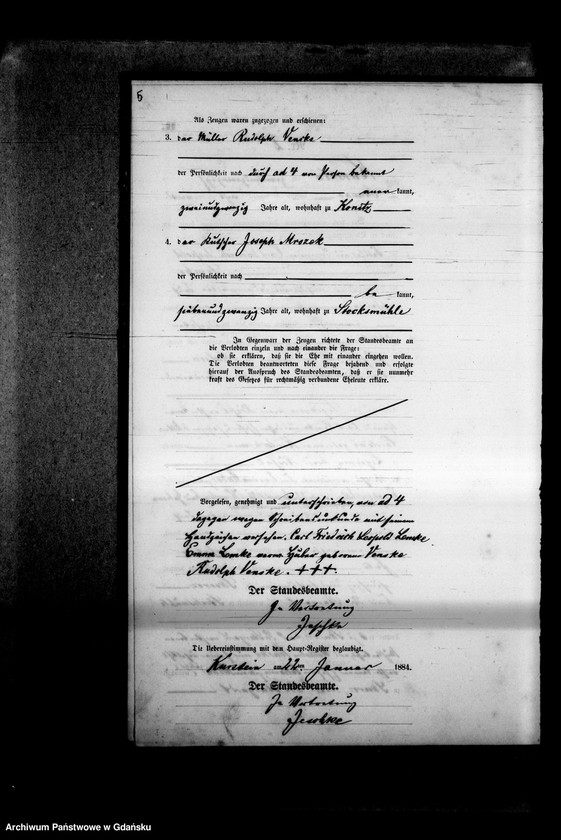 5
Als Zeugen waren zugezogen und erschienen:
3. der Müller Rudolph Venske
der Persönlichkeit nach durch ad 4 von Person bekannt
kannt,
zweiundzwanzig Jahre alt, wohnhaft zu Konitz
4. der Kutscher Joseph Mrozek
der Persönlichkeit nach
be kannt,
siebenundzwanzig Jahre alt, wohnhaft zu Stocksmühle
In Gegenwart der Zeugen richtete der Standesbeamte an
die Verlobten einzeln und nach einander die Frage:
ob sie erklären, daß sie die Ehe mit einander eingehen wollen.
Die Verlobten beantworteten diese Frage bejahend und erfolgte
hierauf der Ausspruch des Standesbeamten, daß er sie nunmehr
kraft des Gesetzes für rechtmäßig verbundene Eheleute erkläre.
Vorgelesen, genehmigt und unterschrieben, von ad 4
dagegen wegen Schreibensunkunde mit seinem
Handzeichen versehen. Carl Friedrich Leopold Lemke
Emma Lemke geborene Venske
Rudolph Venske. +++.
Der Standesbeamte.
In Vertretung
Jeschke
Die Uebereinstimmung mit dem Haupt-Register beglaubigt.
22ten Januar 1884.
Der Standesbeamte.
In Vertretung
Jeschke
Archiwum Państwowe w Gdańsku